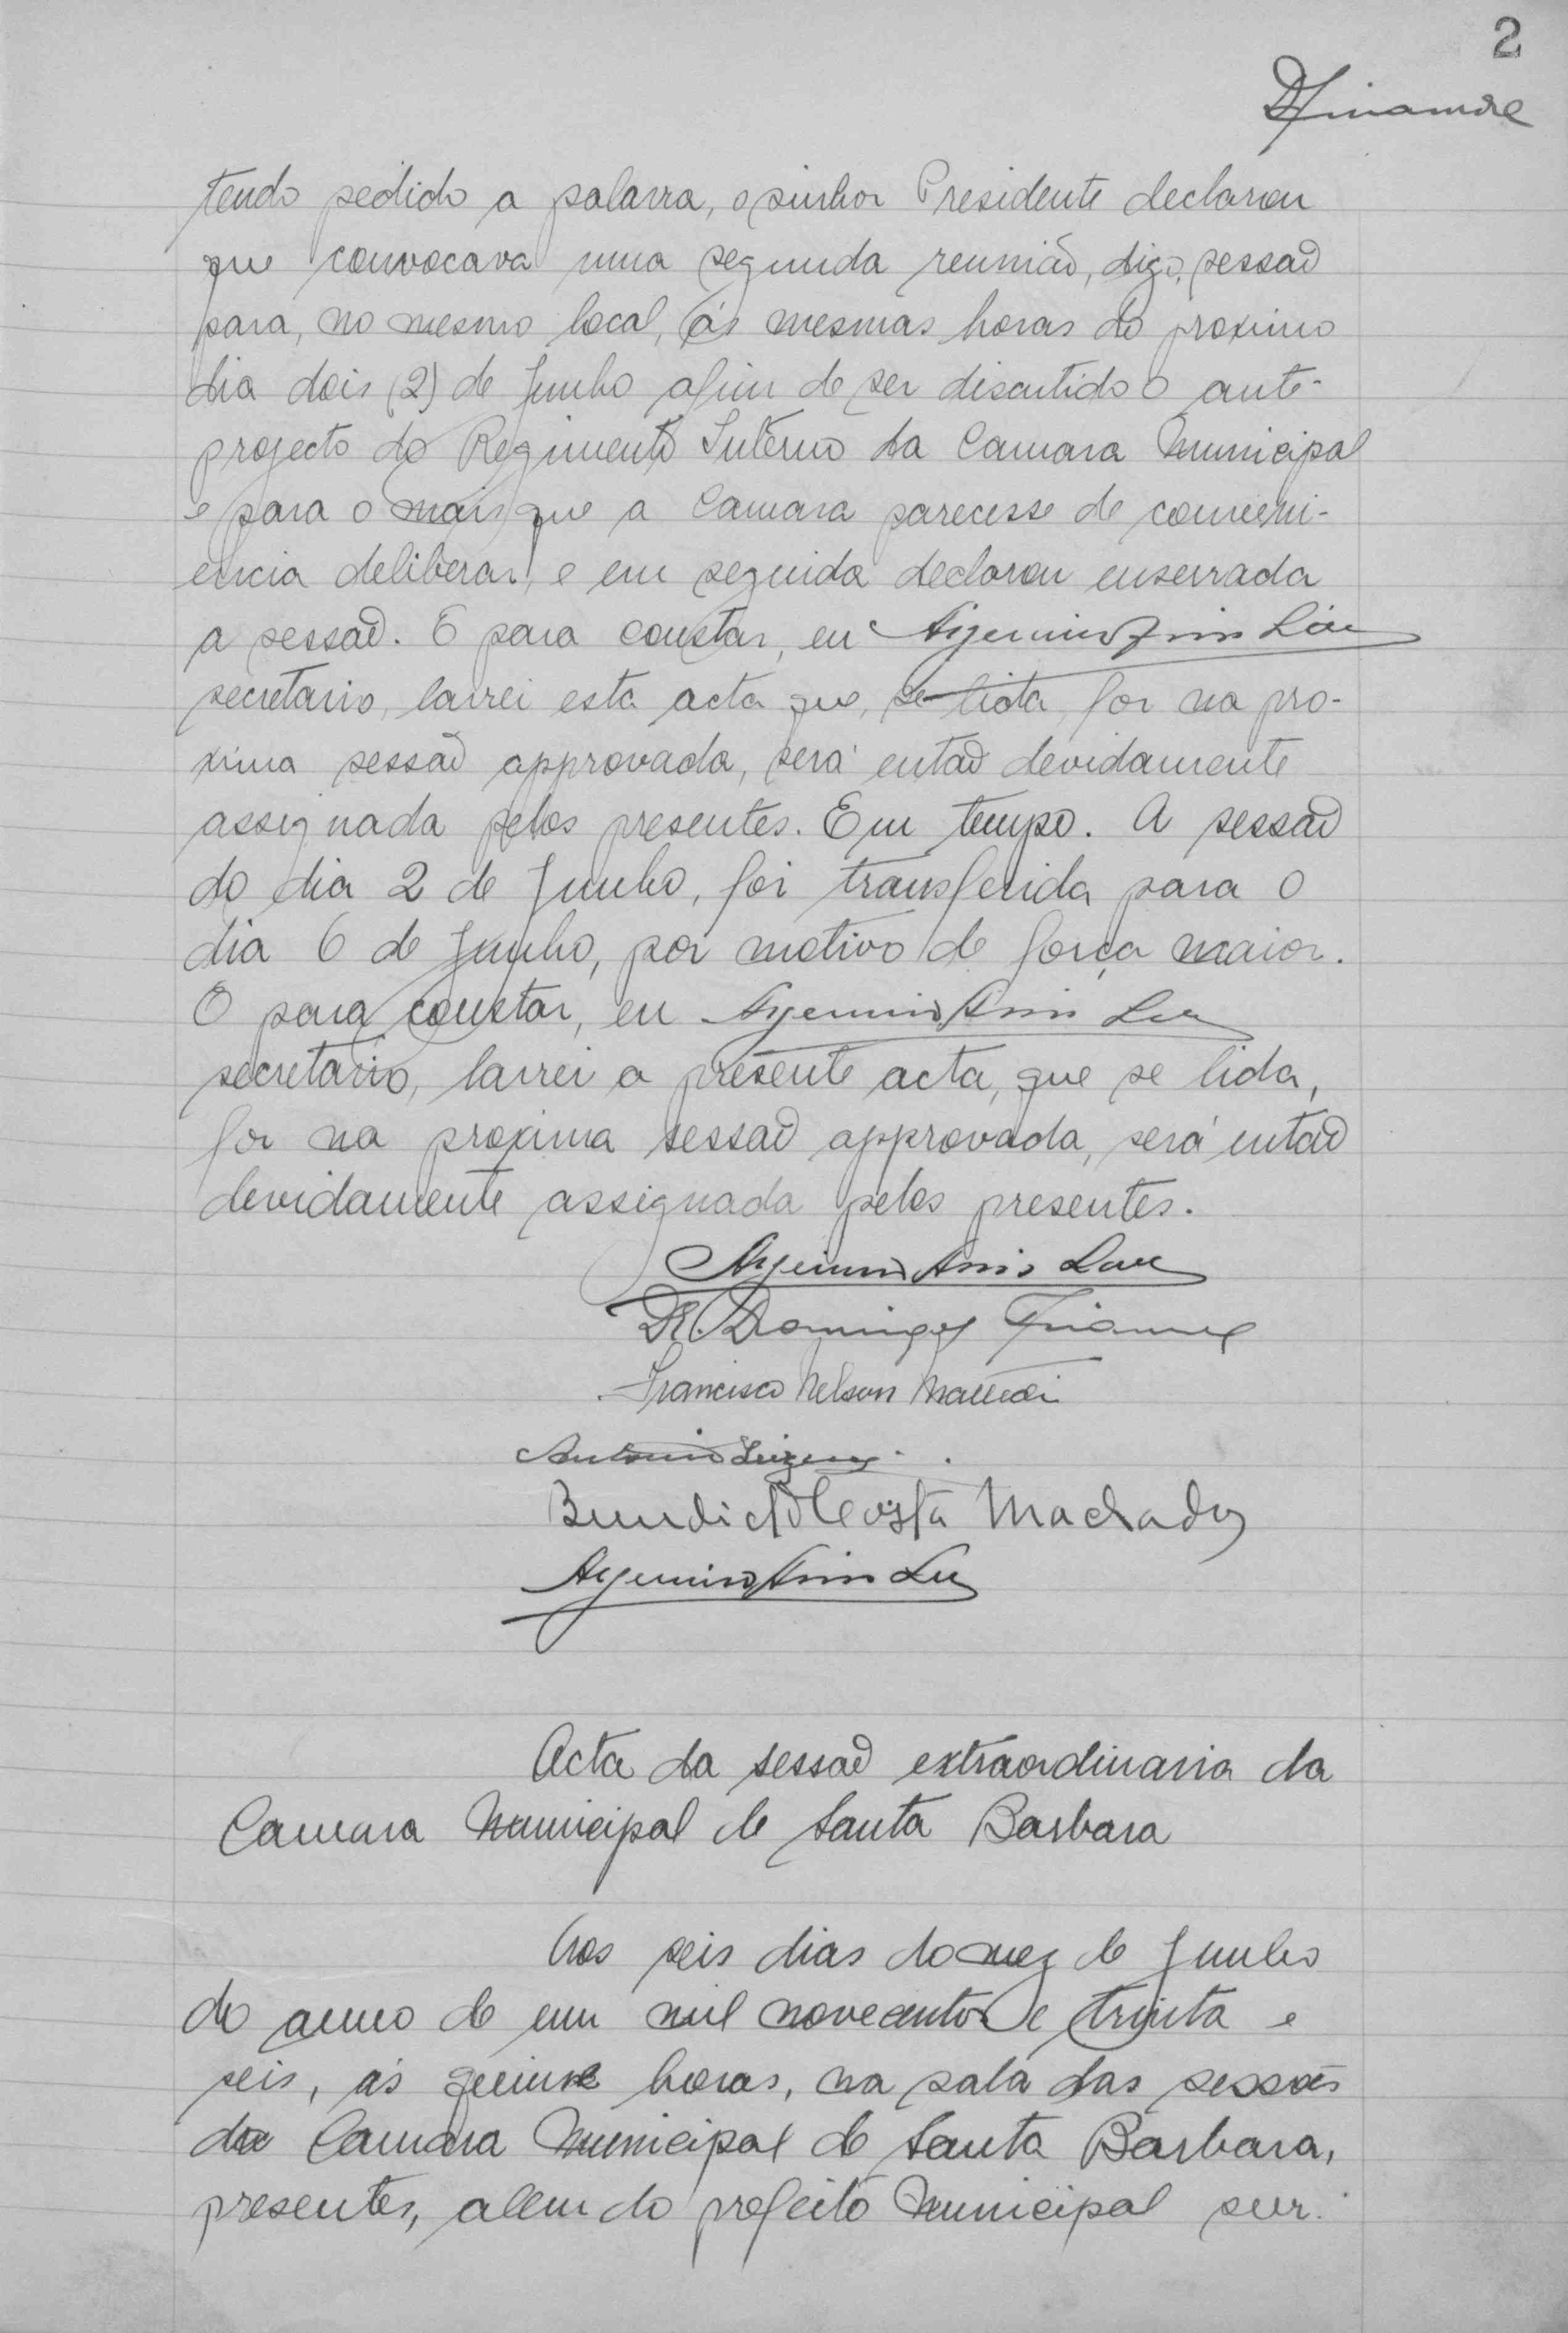 2
tendo pedido a palavra, o senhor Presidente declarou
que convocava uma segunda reunião, digo, sessão
para, no mesmo local, ás mesmas horas do proximo
dia dois (2) de Junho afim de ser discutido o ante-
projecto do Regimento Interno da Camara Municipal
e para o mais que a Camara parecesse de conveni-
encia deliberar, e em seguida declarou enserrada
a sessão. E para constar, eu Argemiro Assis
secretario, lavrei esta acta que, se lida, for na pro-
xima sessão approvada, será então devidamente
assignada pelos presentes. Em tempo. A sessão
do dia 2 de Junho, foi transferida para o
dia 6 de Junho, por motivo de força maior.
E para constar, eu Argemiro Assis
secretario, lavrei a presente acta, que se lida,
for na proxima sessão approvada, será então
devidamente assignada pelos presentes.
Argemiro Assis
Dr. Domingos
Francisco Nelson
Antonio
Benedicto Costa Machado
Argemiro Assis
Acta da sessão extraordinaria da
Camara Municipal de Santa Barbara
Aos seis dias do mez de Junho
do anno de um mil novecentos e trinta e
seis, ás quinze horas, na sala das sessões
da Camara Municipal de Santa Barbara,
presentes, alem do prefeito Municipal snr.